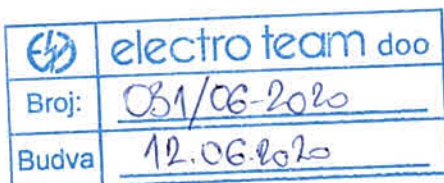 electro team doo
Broj: 031/06-2020
Budva 12.06.2020